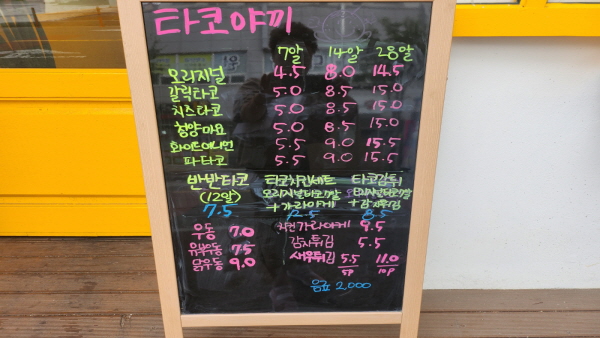 타코야끼
7알 14알 28알
오리지널 4.5 8.0 14.5
갈릭타코 5.0 8.5 15.0
치즈타코 5.0 8.5 15.0
청양마요 5.0 8.5 15.0
화이트어니언 5.5 9.0 15.5
파타코 5.5 9.0 15.5
반반타코 타코치킨세트 타코감튀
(12알) 오리지널타코7알
7.5 +가라아게 +감자튀김
12.5 8.5
우동 7.0 치킨가라아게 9.5
유부우동 7.5 감자튀김 5.5
닭우동 9.0 새우튀김 5.5 11.0
5P 10P
음료 2,000